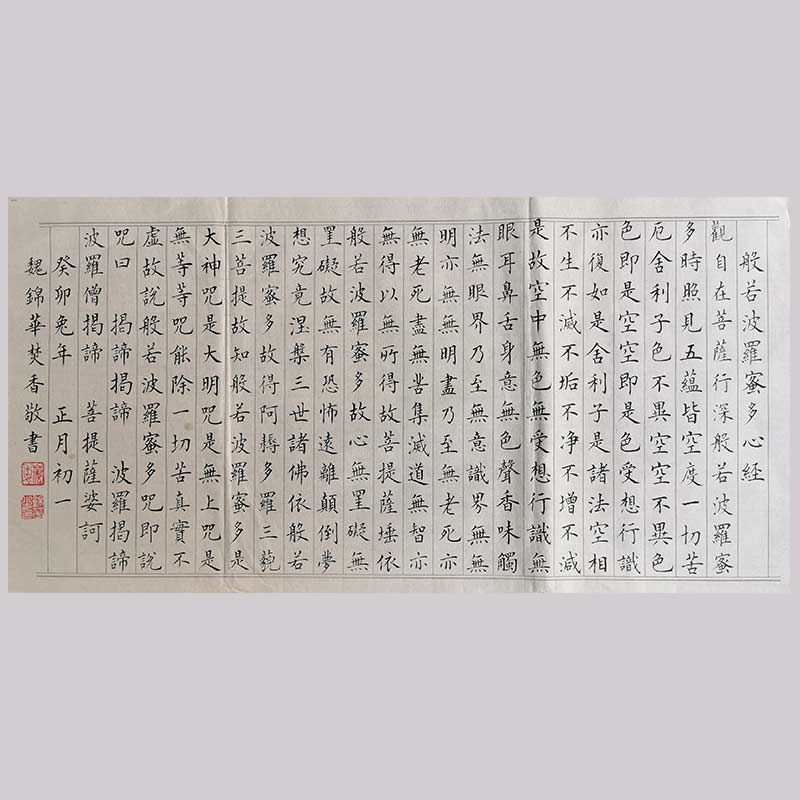 般若波羅蜜多心経
觀自在菩薩行深般若波羅蜜
多時照見五蘊皆空度一切苦
厄舍利子色不異空空不異色
色即是空空即是色受想行識
亦復如是舍利子是諸法空相
不生不滅不垢不净不增不減
是故空中無色無受想行識無
眼耳鼻舌身意無色聲香味觸
法無眼界乃至無意識界無無
明亦無無明盡乃至無老死亦
無老死盡無苦集滅道無智亦
無得以無所得故菩提薩埵依
般若波羅蜜多故心無罣礙無
罣礙故無有恐怖遠離顛倒夢
想究竟涅槃三世諸佛依般若
波羅蜜多故得阿耨多羅三藐
三菩提故知般若波羅蜜多是
大神咒是大明咒是無上咒是
無等等咒能除一切苦真實不
虛故說般若波羅蜜多咒即說
咒曰 揭諦揭諦 波羅揭諦
波羅僧揭諦 菩提薩婆訶
癸卯兔年 正月初一
魏錦華焚香敬書